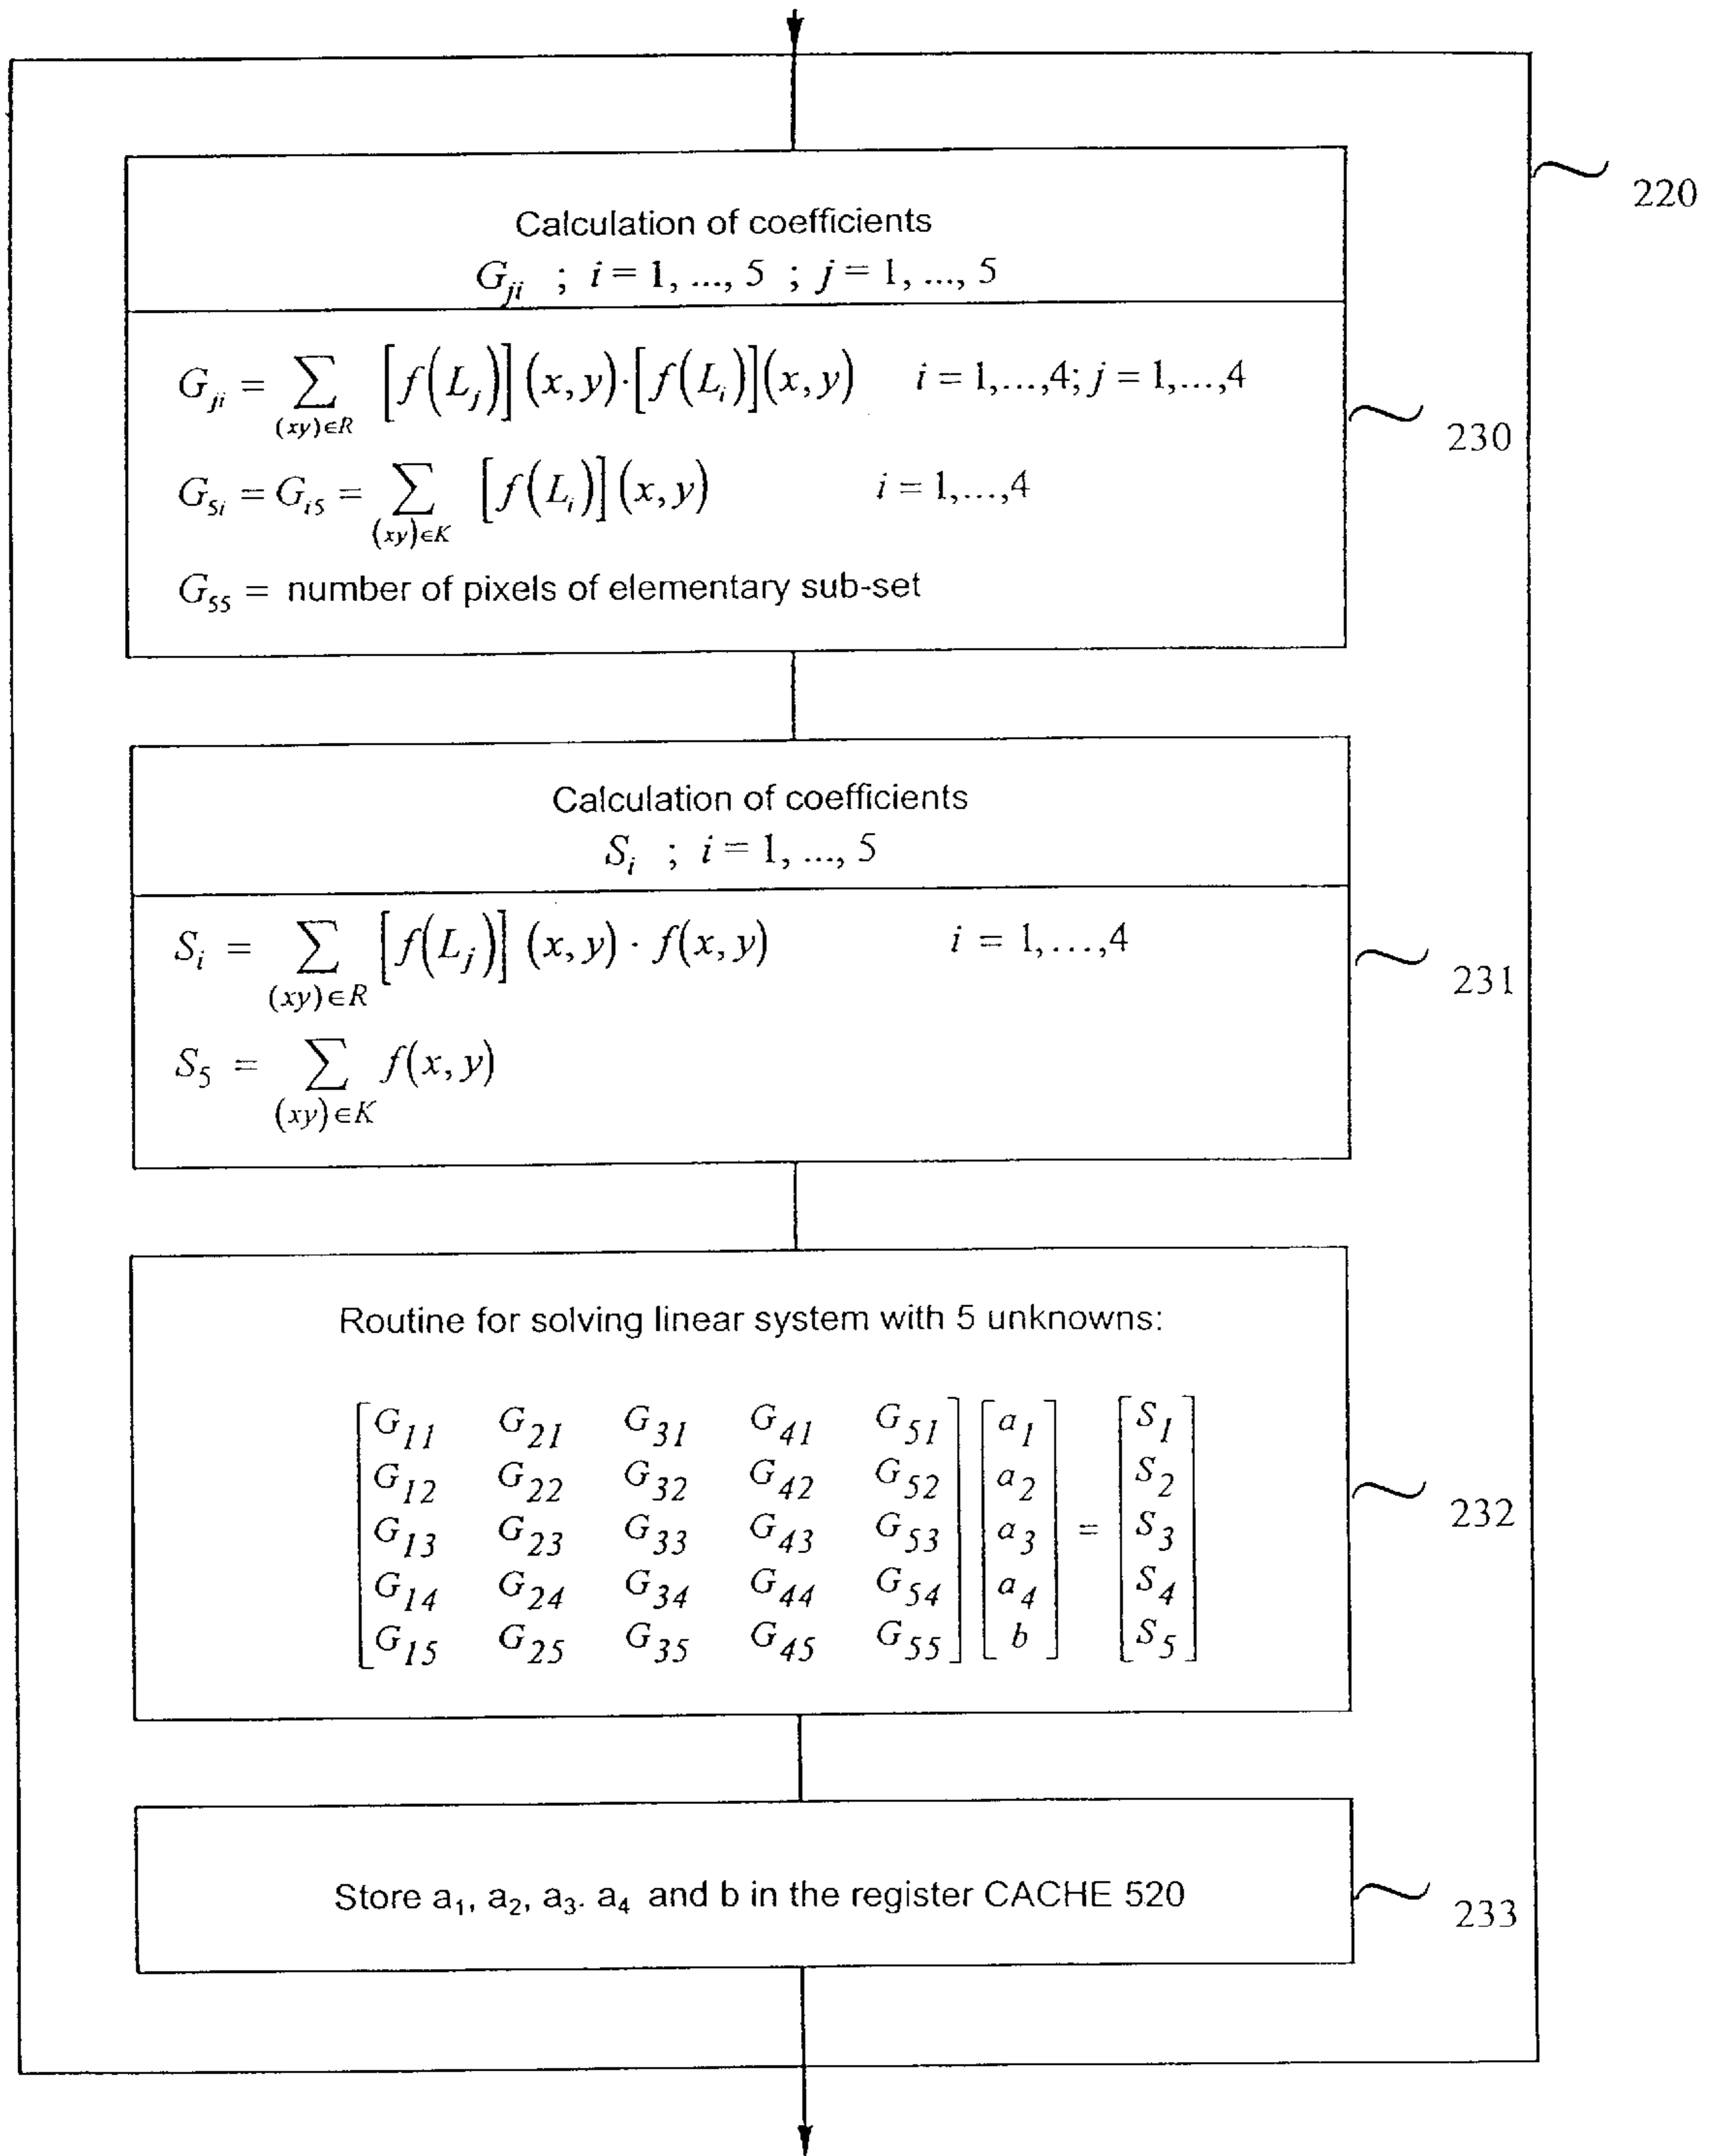 220
Calculation of coefficients
G_ji ; i = 1, ..., 5 ; j = 1, ..., 5
G_ji = ∑_(xy)∈R [f(L_j)](x,y)·[f(L_i)](x,y) i = 1,...,4; j = 1,...,4
G_5i = G_i5 = ∑_(xy)∈K [f(L_i)](x,y) i = 1,...,4
G_55 = number of pixels of elementary sub-set
230
Calculation of coefficients
S_i ; i = 1, ..., 5
S_i = ∑_(xy)∈R [f(L_j)](x,y) · f(x,y) i = 1,...,4
S_5 = ∑_(xy)∈K f(x,y)
231
Routine for solving linear system with 5 unknowns:
[G_11 G_21 G_31 G_41 G_51] [a_1] [S_1]
[G_12 G_22 G_32 G_42 G_52] [a_2] [S_2]
[G_13 G_23 G_33 G_43 G_53] [a_3] = [S_3]
[G_14 G_24 G_34 G_44 G_54] [a_4] [S_4]
[G_15 G_25 G_35 G_45 G_55] [b] [S_5]
232
Store a₁, a₂, a₃. a₄ and b in the register CACHE 520
233